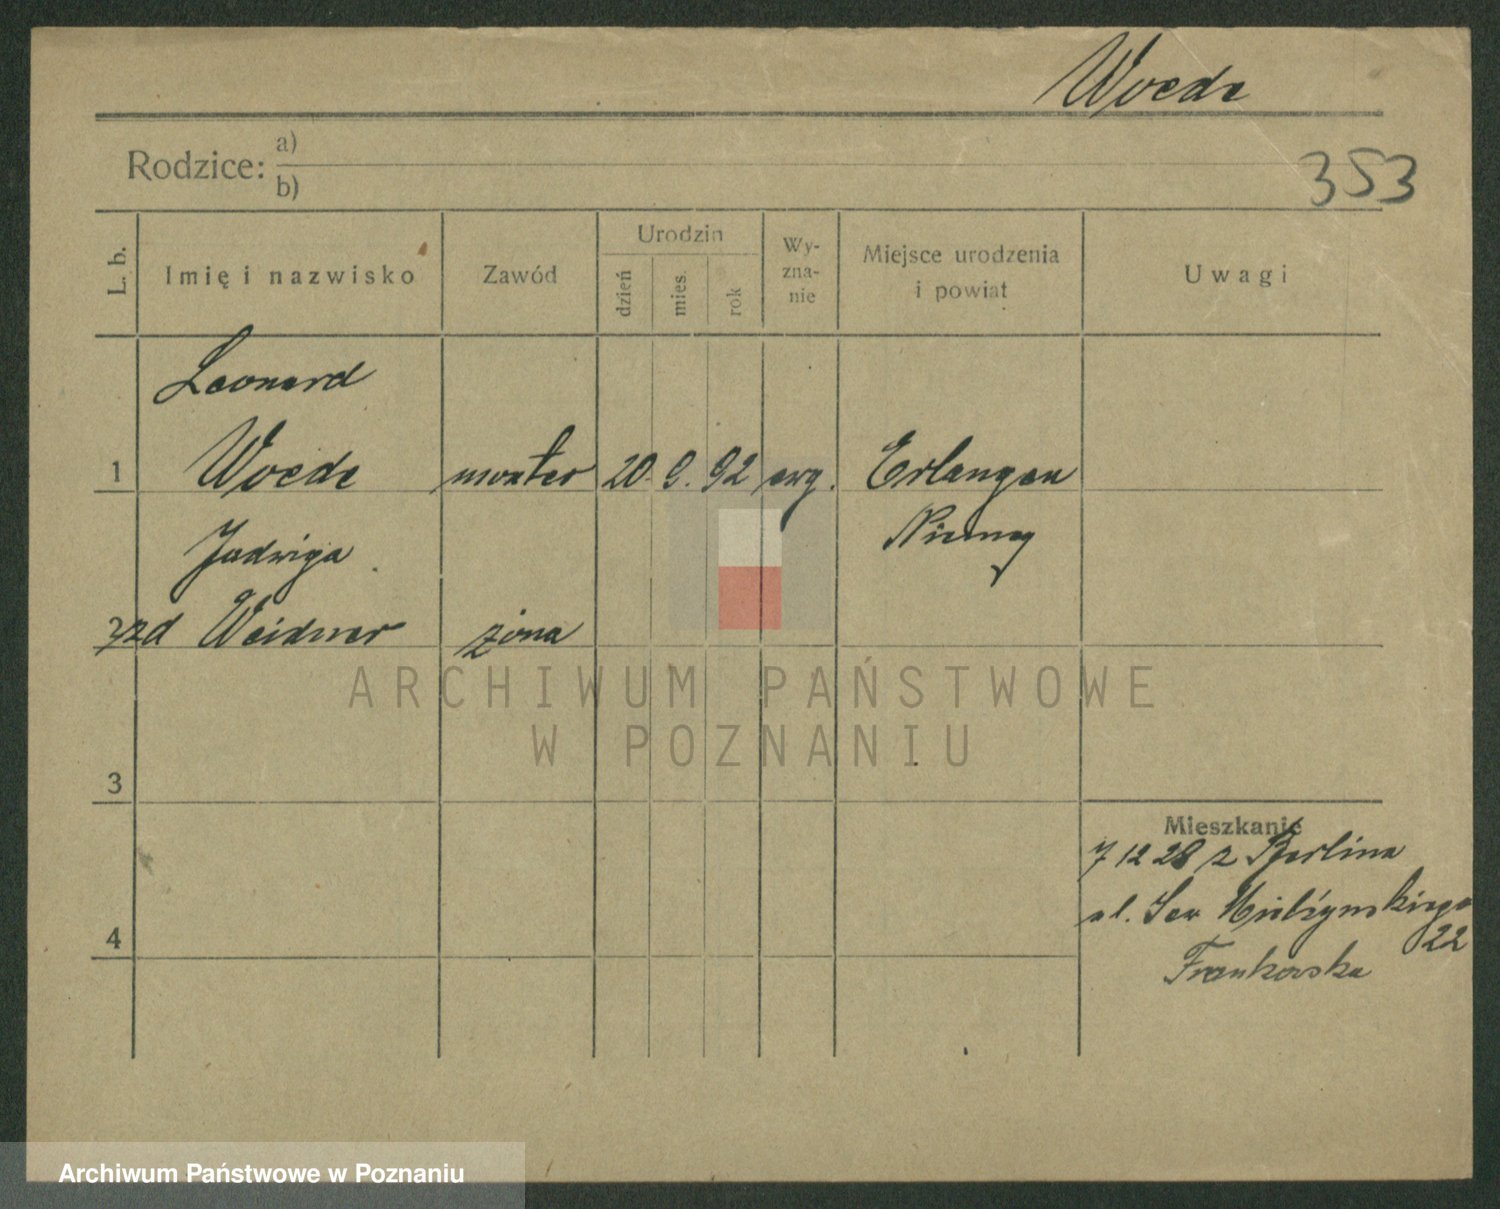 Woede
Rodzice: a)
b)
353
L. b.
Imię i nazwisko
Zawód
Urodzin
dzień
mies.
rok
Wy-
zna-
nie
Miejsce urodzenia
i powiat
Uwagi
Leonard
1 Woede monter 20. 9. 92 ewg. Erlangen
Niemcy
Jadwiga
2 zd Weidner żona
ARCHIWUM PAŃSTWOWE
W POZNANIU
3
Mieszkanie
7 12 28 z Berlina
ul. Sew Mielżyńskiego
22
4
Frankowska
Archiwum Państwowe w Poznaniu